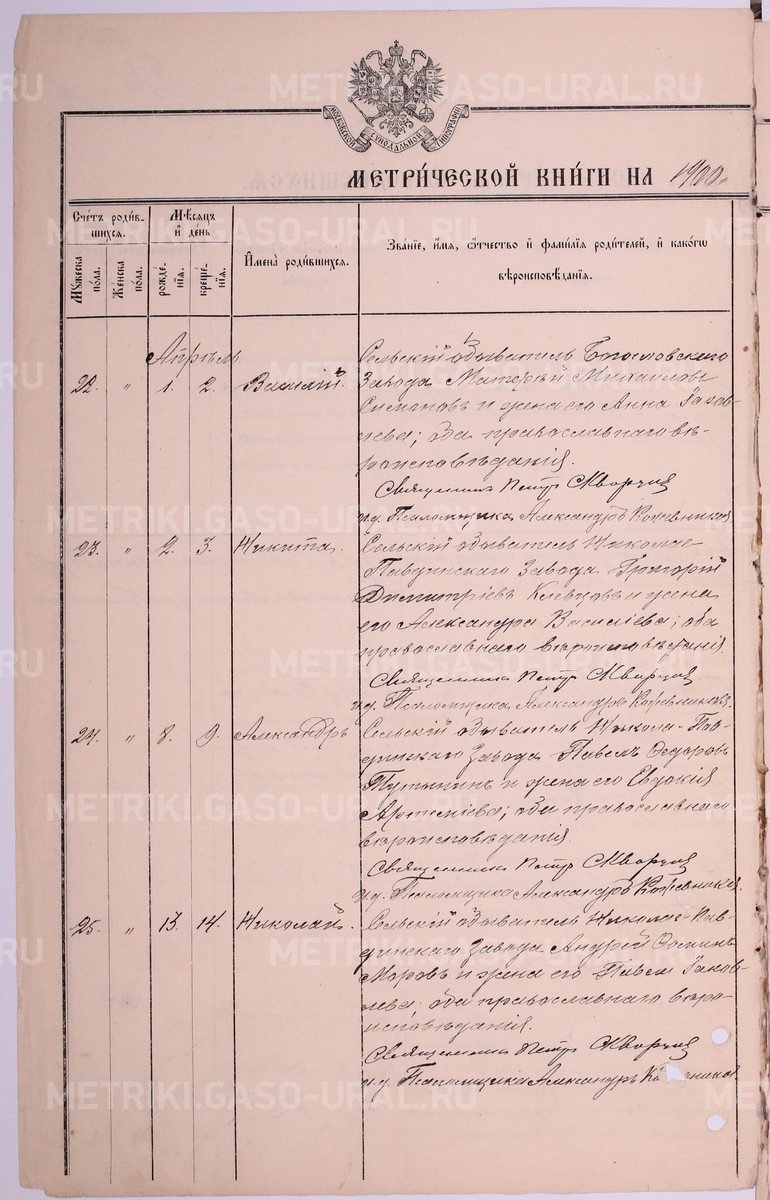 МОСКОВСКОЙ СѴНОДАЛЬНОЙ ТИПОГРАФІИ
МЕТРИ́ЧЕСКОЙ КНИ́ГИ НА 1900
Сче́тъ роди́в-
шихся.
Мѣ́сяцъ
и҆ де́нь
Му́жеска
по́ла.
Же́нска
по́ла.
рожде-
нїя.
креще-
нїя.
И҆мена̀ роди́вшихся.
Зва́нїе, и҆́мя, ѻ҆́тчество и҆ фами́лїя роди́телей, и҆ како́гѡ
вѣроисповѣ́данїя.
Апрѣль
22. " 1. 2. Василій.
Сельскій обыватель Богословскаго
завода Матѳей Михаиловъ
Симоновъ и жена его Анна Іаков-
лева; оба православнаго вѣ-
роисповѣданія.
Священникъ Петръ Скворцов
и.д. Псаломщика Александръ Кожевников
23. " 2. 3. Никита.
Сельскій обыватель Николае-
Павдинскаго завода Григорій
Димитріевъ и жена
его Александра Василіева; оба
православнаго вѣроисповѣданія.
Священникъ Петръ Скворцов
и.д. Псаломщика Александръ Кожевников.
24. " 8. 9. Александръ
Сельскій обыватель Никола-Пав-
динскаго завода Павелъ Ѳедоровъ
и жена его Евдокія
Артеміева; оба православнаго
вѣроисповѣданія.
Священникъ Петръ Скворцов
и.д. Псаломщика Александръ Кожевников.
25. " 13. 14. Николай.
Сельскій обыватель Николае-Пав-
динскаго завода Андрей Ѳоминъ
Моровъ и жена его Іаков-
лева; оба православнаго вѣро-
исповѣданія.
Священникъ Петръ Скворцов
и.д. Псаломщика Александръ
METRIKI.GASO-URAL.RU